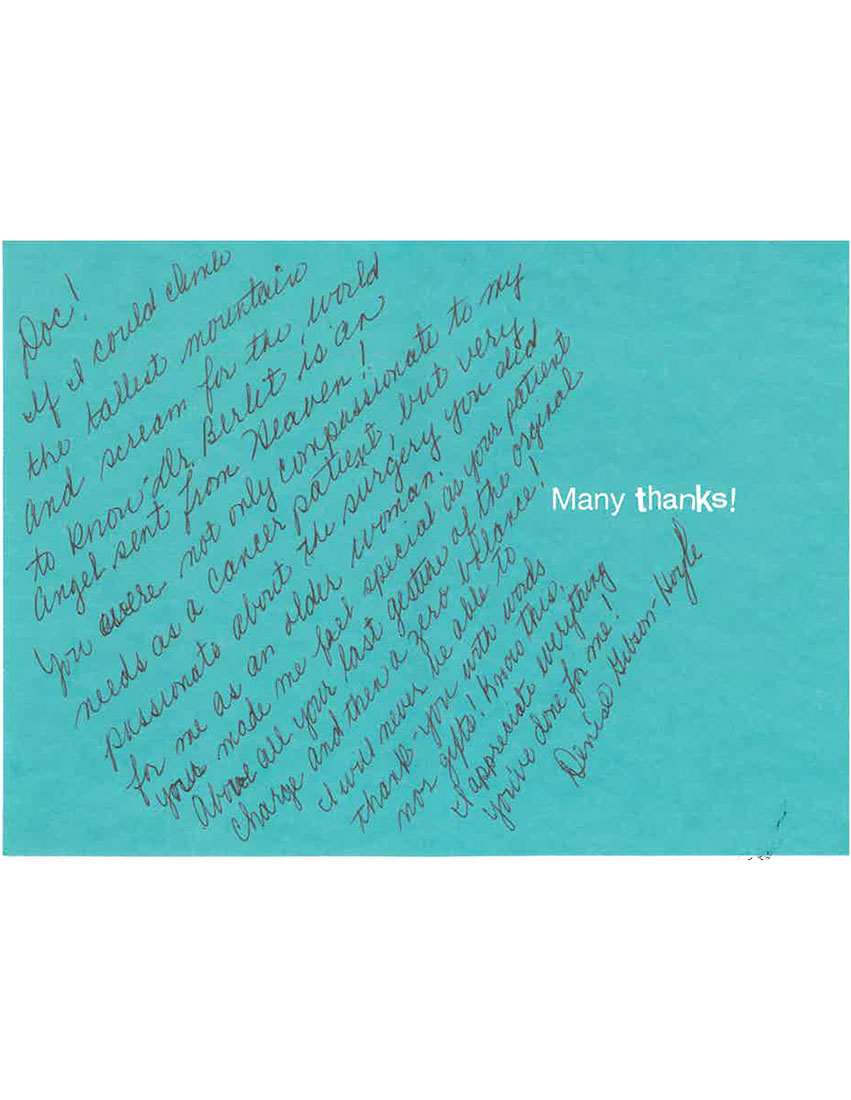 Doc!
If I could climb
the tallest mountain
and scream for the world
to know Dr. Berlet is an
Angel sent from Heaven!
You were not only compassionate to my
needs as a cancer patient, but very
passionate about the surgery you did
for me as an older woman.
You made me feel special as your patient
Above all your last gesture of the orginal
charge and then a zero ballance!
I will never be able to
thank-you with words
nor gifts! Know this,
I appreciate everything
you've done for me!
Denise Gibson-Hoyle
Many thanks!